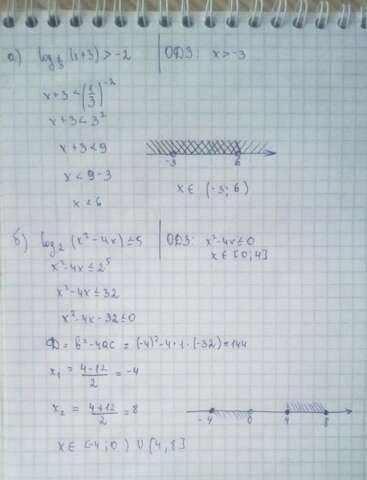 а) log_{1/3} (x+3) > -2 | ОДЗ: x > -3
x+3 < (1/3)^{-2}
x+3 < 3^2
x+3 < 9
x < 9-3
-3 6
x < 6
x ∈ (-3; 6)
б) log_2 (x^2-4x) ≤ 5 | ОДЗ: x^2-4x ≤ 0
x ∈ [0; 4]
x^2-4x ≤ 2^5
x^2-4x ≤ 32
x^2-4x-32 ≤ 0
D = b^2-4ac = (-4)^2-4·1·(-32) = 144
x_1 = (4-12)/2 = -4
x_2 = (4+12)/2 = 8
-4 0 4 8
x ∈ [-4; 0) ∪ [4, 8]